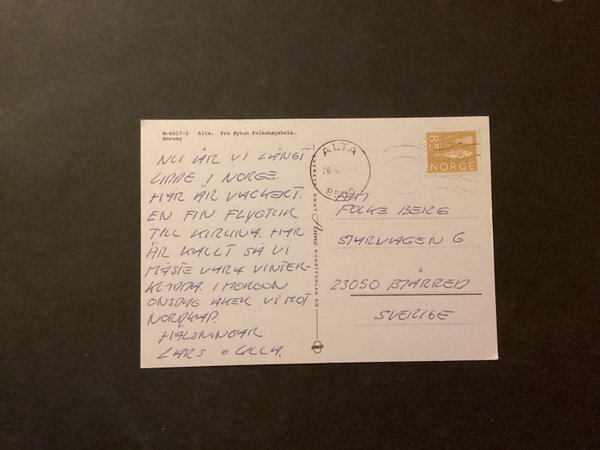 M-6017-3 Alta. Fra Øytun Folkehøyskole.
Norway
NU ÄR VI LÅNGT
UPPE I NORGE.
HÄR ÄR VACKERT.
EN FIN FLYGTUR
TILL KIRUNA. HÄR
ÄR KALLT SÅ VI
MÅSTE VARA VINTER-
KLÄDDA. I MORGON
ONSDAG ÅKER VI MOT
NORDKAP.
HÄLSNINGAR
LARS o ULLA.
ENERET: KNUT Aune KUNSTFORLAG AS
ALTA
9500
85
NORGE
FOLKE BERG
STURVÄGEN 6
23050 BJÄRRED
SVERIGE